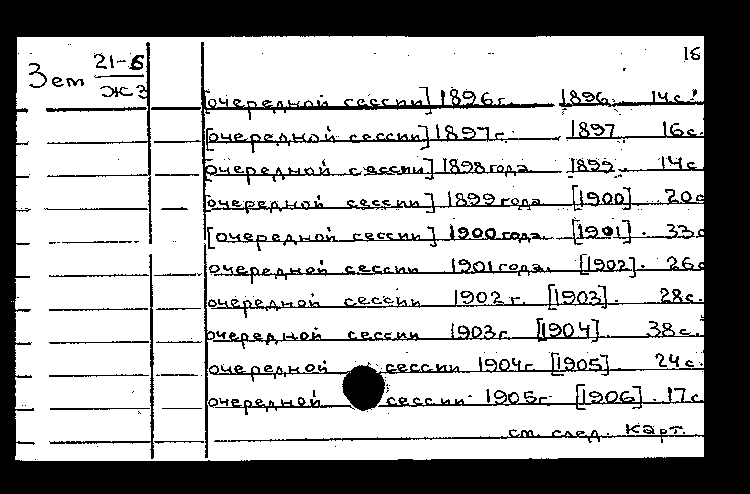 16
Зет 21-6
ЖЗ
[очередной сессии] 1896г. 1896. 14с.
[очередной сессии] 1897г. 1897 16с.
[очередной сессии] 1898 года 1899. 14с
[очередной сессии] 1899 года [1900] 20с
[очередной сессии] 1900 года. [1901]. 33с
очередной сессии 1901 года. [1902]. 26с
очередной сессии 1902 г. [1903]. 28с.
очередной сессии 1903г. [1904] 38с.
очередной сессии 1904г. [1905]. 24с.
очередной сессии 1905г. [1906]. 17с
см. след. карт.